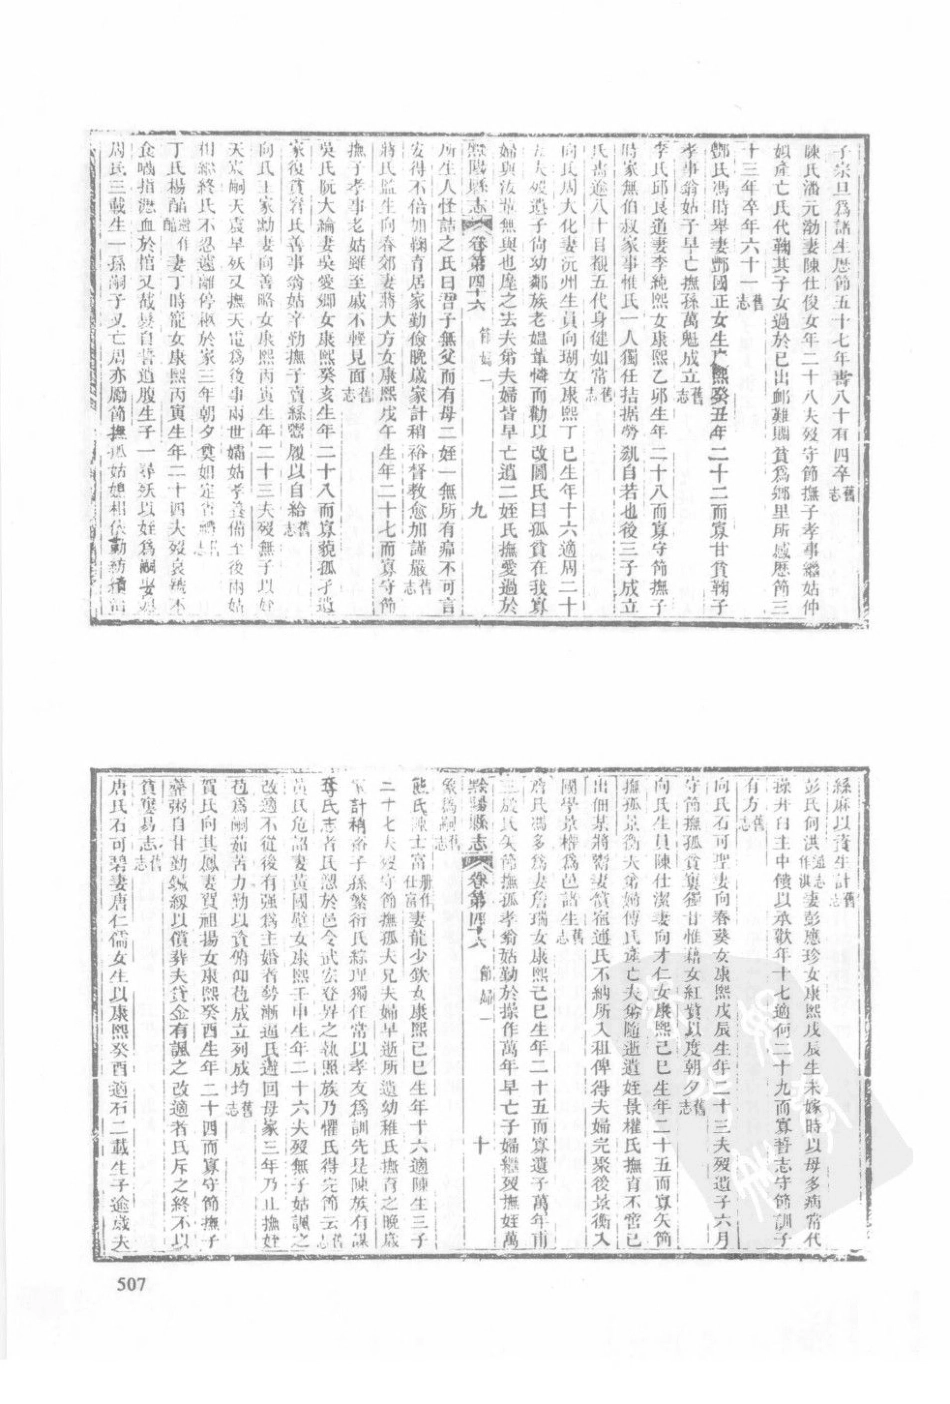 子宗旦爲諸生歷節五十七年壽八十有四卒舊志
陳氏潘元渤妻陳仕俊女年二十八夫歿守節撫子孝事繼姑仲
娰產亡氏代鞠其子女過於已出卹難賙貧爲鄉里所感歷節三
十三年卒年六十一舊志
鄷氏馮時舉妻鄷國正女生康熙癸丑年二十二而寡甘貧鞠子
孝事翁姑子早亡撫孫萬魁成立舊志
李氏邱良道妻李純熙女康熙乙卯生年二十八而寡守節撫子
時家無伯叔家事惟氏一人獨任拮据勞瓠自若也後三子成立
氏壽逾八十目覩五代身健如常舊志
向氏周大化妻沅州生員向瑚女康熙丁巳生年十六適周二十
五夫歿遺子尙幼鄰族老媼葷憐而勸以改圖氏曰孤貧在我寡
婦與汝輩無與也麾之去夫弟夫婦皆早亡遺二姪氏撫愛過於
黔陽縣志 卷第四十六 節婦一 九
所生人怪詰之氏曰吾子無父而有母二姪一無所有痛不可言
安得不倍加鞠育居家勤儉晚歲家計稍裕督敎愈加謹嚴舊志
蔣氏監生向春郊妻蔣大方女康熙戊午生年二十七而寡守節
撫子孝事老姑雖至戚不輕見面舊志
吳氏阮大綸妻吳愛卿女康熙癸亥生年二十八而寡貌孤子遺
家後貧窘氏善事翁姑辛勤撫子賣絲鬻履以自給舊志
向氏王家勳妻向善略女康熙丙寅生年二十三夫歿無子以姪
天宸嗣天宸早殀又撫天電爲後事兩世孀姑孝養備至後兩姑
相繼終氏不忍遠離停柩於家三年朝夕奠如定省禮舊志
丁氏楊酺妻丁時寵女康熙丙寅生年二十四夫歿哀號不
食嚙指瀝血於棺又截髮自誓遺腹生子一尋殀以姪爲嗣娶
周氏三載生一孫嗣子又亡周亦勵節撫孤姑媳相依勤紡績
絲麻以資生計舊志
彭氏何洪妻彭應珍女康熙戊辰生未嫁時以母多病常代
操井臼主中饋以承歡年十七適何二十九而寡誓志守節訓子
有方舊志
向氏石可聖妻向春葵女康熙戊辰生年二十三夫歿遺子六月
守節撫孤貧窶獨甘惟藉女紅賃以度朝夕舊志
向氏生員陳仕潔妻向才仁女康熙己巳生年二十五而寡矢節
撫孤景衡夫弟婦傅氏產亡夫弟隨逝遺姪景權氏撫育不啻已
出佃某將鬻妻償宿逋氏不納所入租俾得夫婦完聚後景衡入
國學景權爲邑諸生舊志
詹氏馮多爲妻詹瑞女康熙己巳生年二十五而寡遺子萬年甫
三歲氏矢節撫孤孝翁姑勤於操作萬年早亡子婦繼歿撫姪萬
黔陽縣志 卷第四十六 節婦一 十
象爲嗣舊志
熊氏陳士富妻熊少欽女康熙己巳生年十六適陳生三子
二十七夫歿守節撫孤夫兄夫婦早逝所遺幼稚氏撫育之晚歲
家計稍裕子孫蕃衍氏綜理獨任常以孝友爲訓先是陳族有謀
奪氏志者氏愬於邑令武宏登畀之執照族乃懼氏得完節云舊志
黃氏危詔妻黃國璧女康熙壬申生年二十六夫歿無子姑諷之
改適不從後有強爲主婚者勢漸逼氏遁回母家三年乃止撫姪
苞爲嗣茹苦力勤以資俯仰苞成立列成均舊志
賀氏向其鳳妻賀祖揚女康熙癸酉生年二十四而寡守節撫子
饘粥自甘勤緘紉以償葬夫貸金有諷之改適者氏斥之終不以
貧窶易志舊志
唐氏石可碧妻唐仁儒女生以康熙癸酉適石二載生子逾歲夫
507